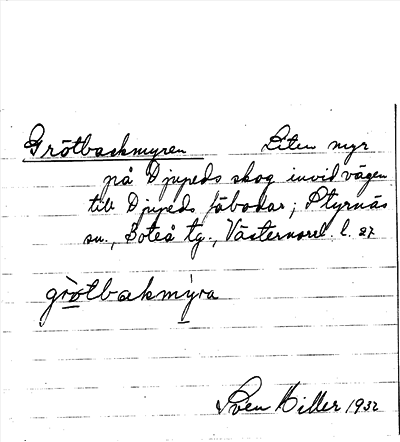 Grötbackmyren Liten myr
på Djupeds skog invid vägen
till Djupeds fäbodar; Styrnäs
sn., Boteå tg., Västernorrl. l. 27
gròtbakmỳra
Sven Hiller 1932